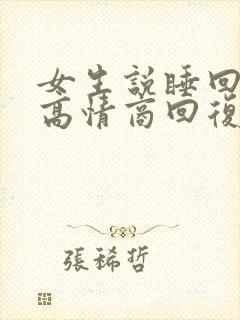 女生說睡回
高情商回復
張稀哲